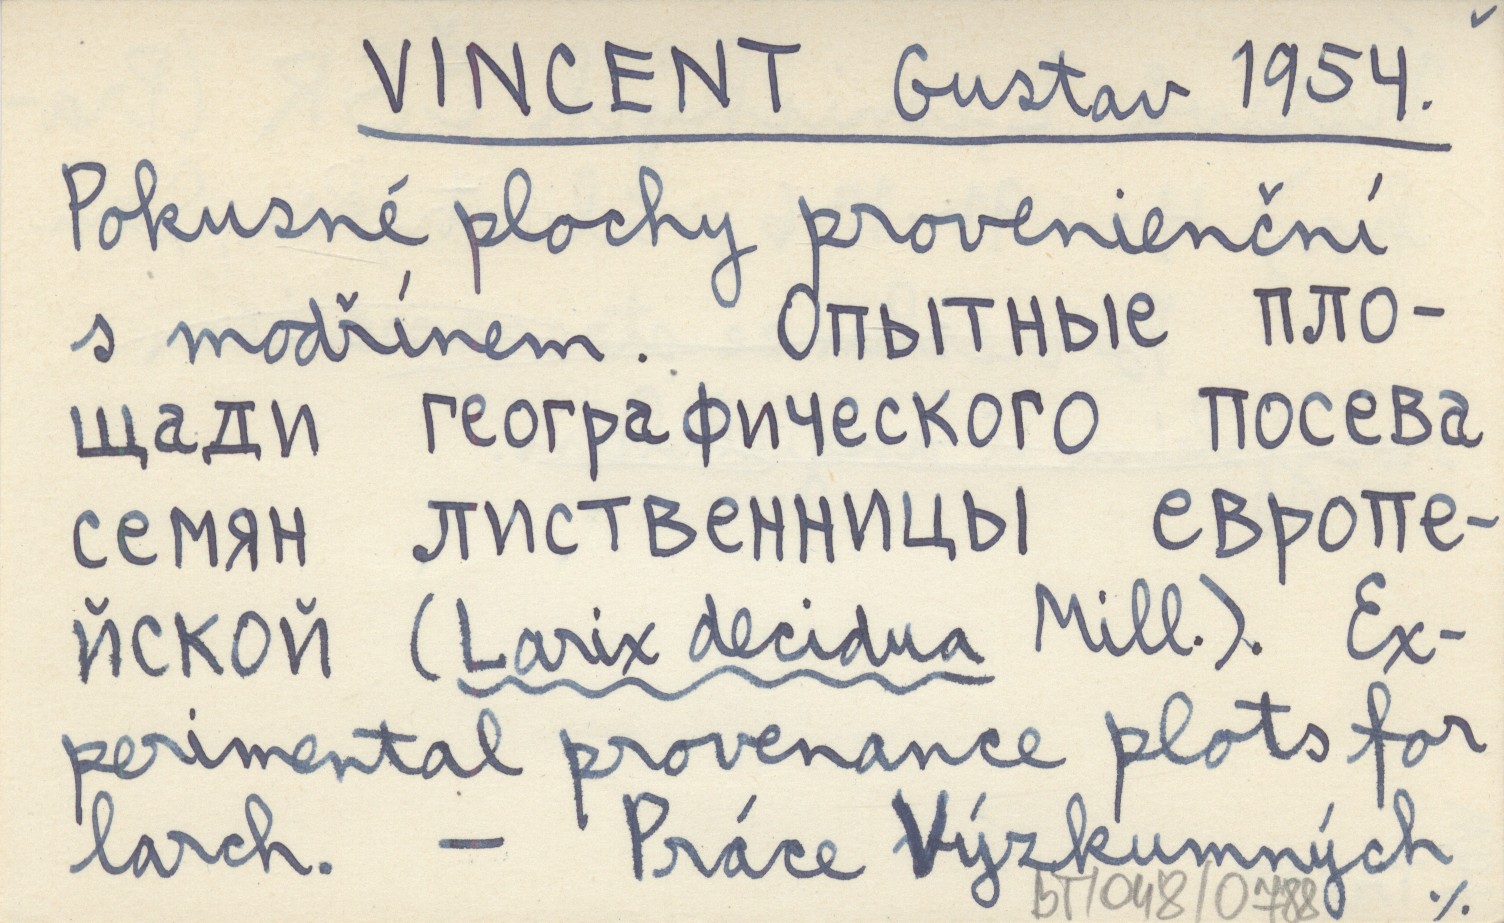 VINCENT Gustav 1954.
Pokusné plochy provenienční
s modřínem. Опытные пло-
щади географического посева
семян лиственницы европе-
йской (Larix decidua Mill.). Ex-
perimental provenance plots for
larch. — Práce Výzkumných
./.
БП/048/0788